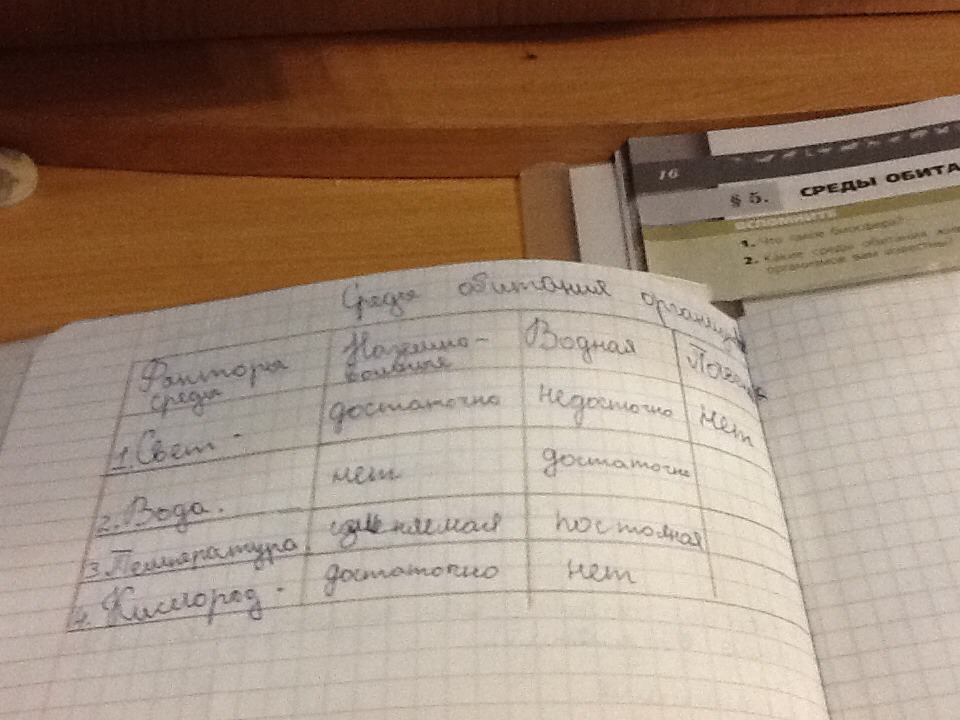 16
§ 5. СРЕДЫ ОБИТА
ВСПОМНИТЕ
1. Что такое биосфера?
2. Какие среды обитания жив
организмов вам известны?
Среды обитания организм
Факторы среды
Наземно-воздушная
Водная
Почвен
1. Свет -
достаточно
недосточно
нет
2. Вода.
нет
достаточно
3. Температура
изменяемая
постоянная
4. Кислород -
достаточно
нет